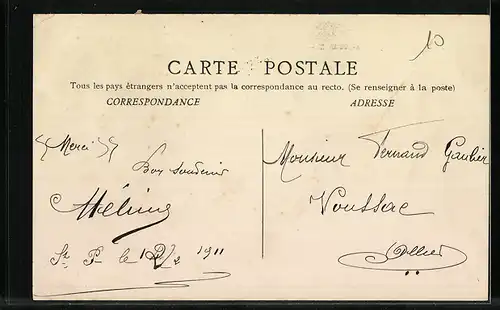 10
CARTE POSTALE
Tous les pays étrangers n'acceptent pas la correspondance au recto. (Se renseigner à la poste)
CORRESPONDANCE
ADRESSE
Merci
Bon souvenir
St P. le 12/2 1911
Monsieur Fernand Gaulier
Voussac
Allier